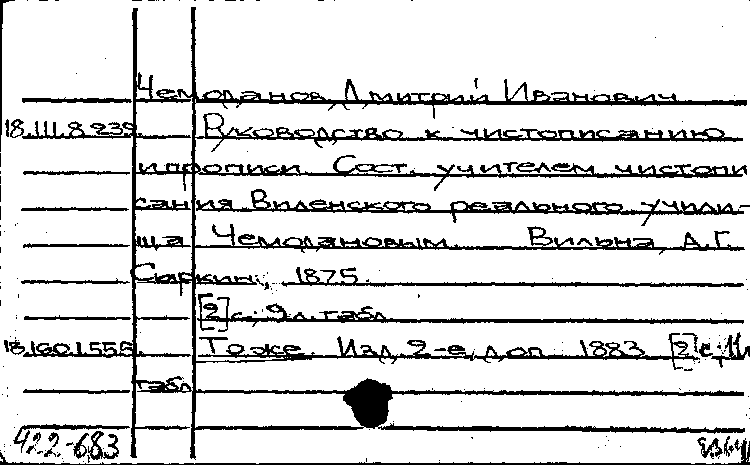 Чемоданов, Дмитрий Иванович
18.III.8.239. Руководство к чистописанию
и прописи. Сост. учителем чистопи-
сания Виленского реального учили-
ща Чемодановым. Вильна, А.Г.
Сыркин, 1875.
[2] с., 9 л. табл.
18.160.1.555. То же. Изд. 2-е, доп. 1883. [2] с., 11 л.
табл.
422-683